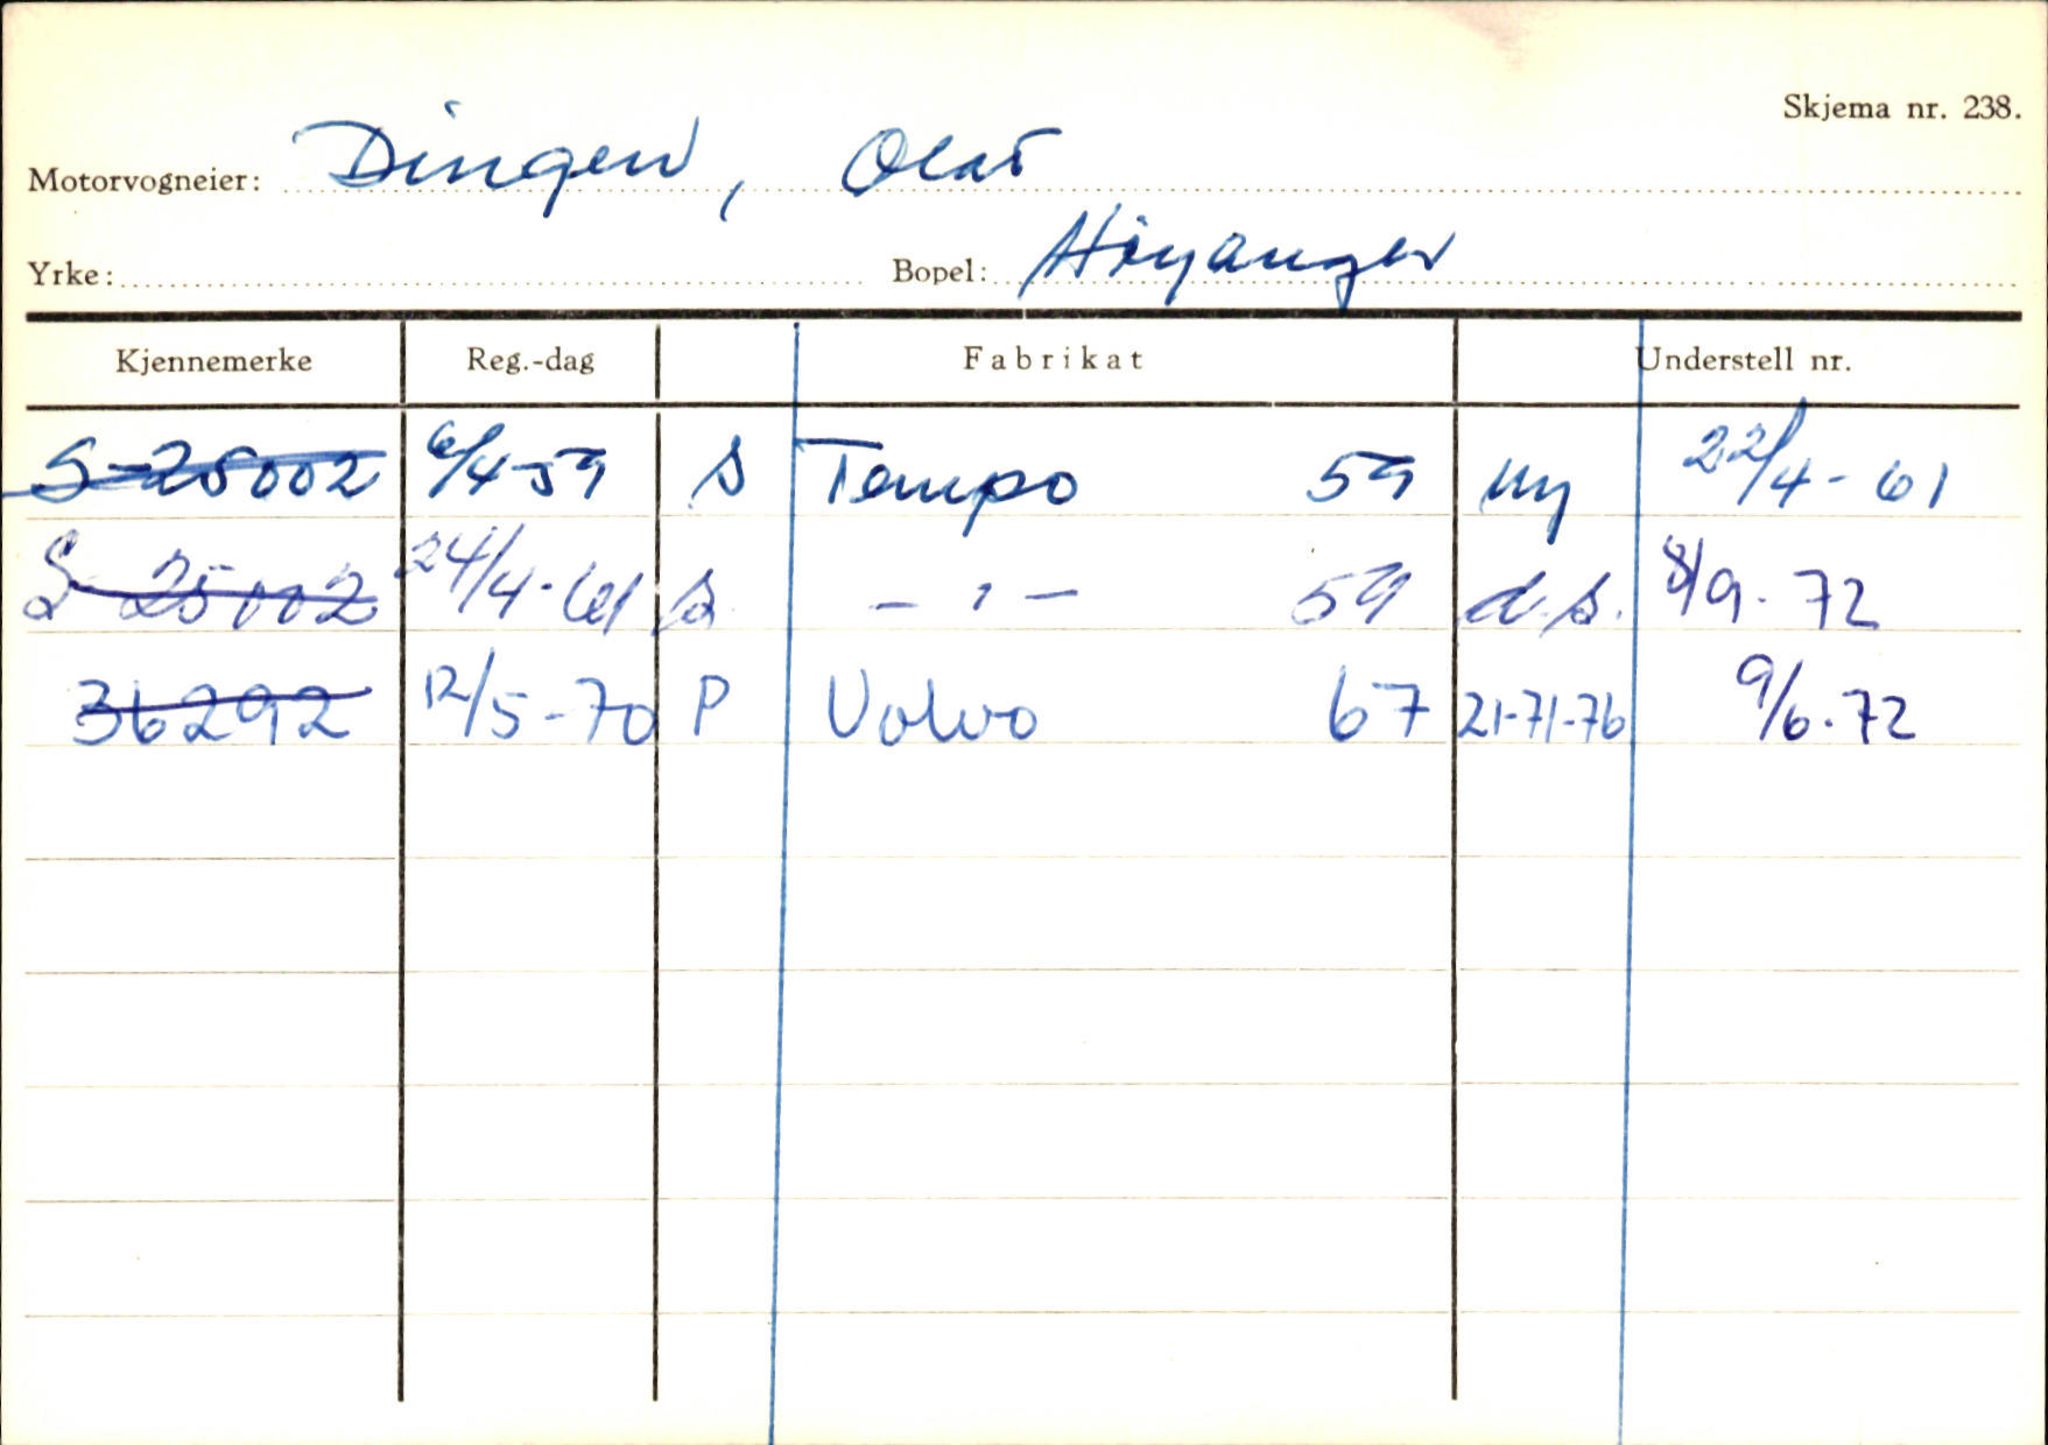 Skjema nr. 238.
Motorvogneier: Dingen, Olav
Yrke: Bopel: Høyanger
Kjennemerke Reg.-dag Fabrikat Understell nr.
S-25002 6/4-59 s Tempo 59 ny 22/4-61
S 25002 24/4-61 s - " - 59 d.s. 8/9-72
36292 12/5-70 P Volvo 67 21-71-76 9/6-72